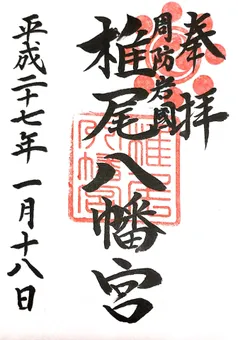 奉拝
周防岩國
椎尾八幡宮
平成二十七年一月十八日
椎尾
八幡宮